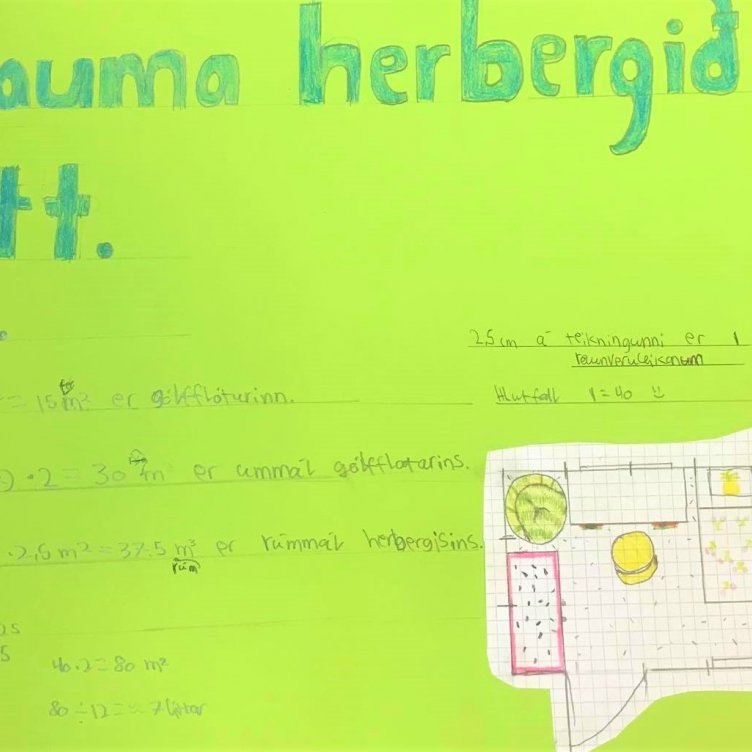 auma herbergið
tt.
2,5 cm á teikningunni er 1
raunveruleikanum
Hlutfall 1=40
= 15 m² er gólfflöturinn.
) · 2 = 30 m er ummál gólfflatarins.
· 2,5 m² = 37,5 m³ er rúmmál herbergisins.
rúm
25
5
40 · 2 = 80 m²
80 ÷ 12 = ~ 7 lítrar